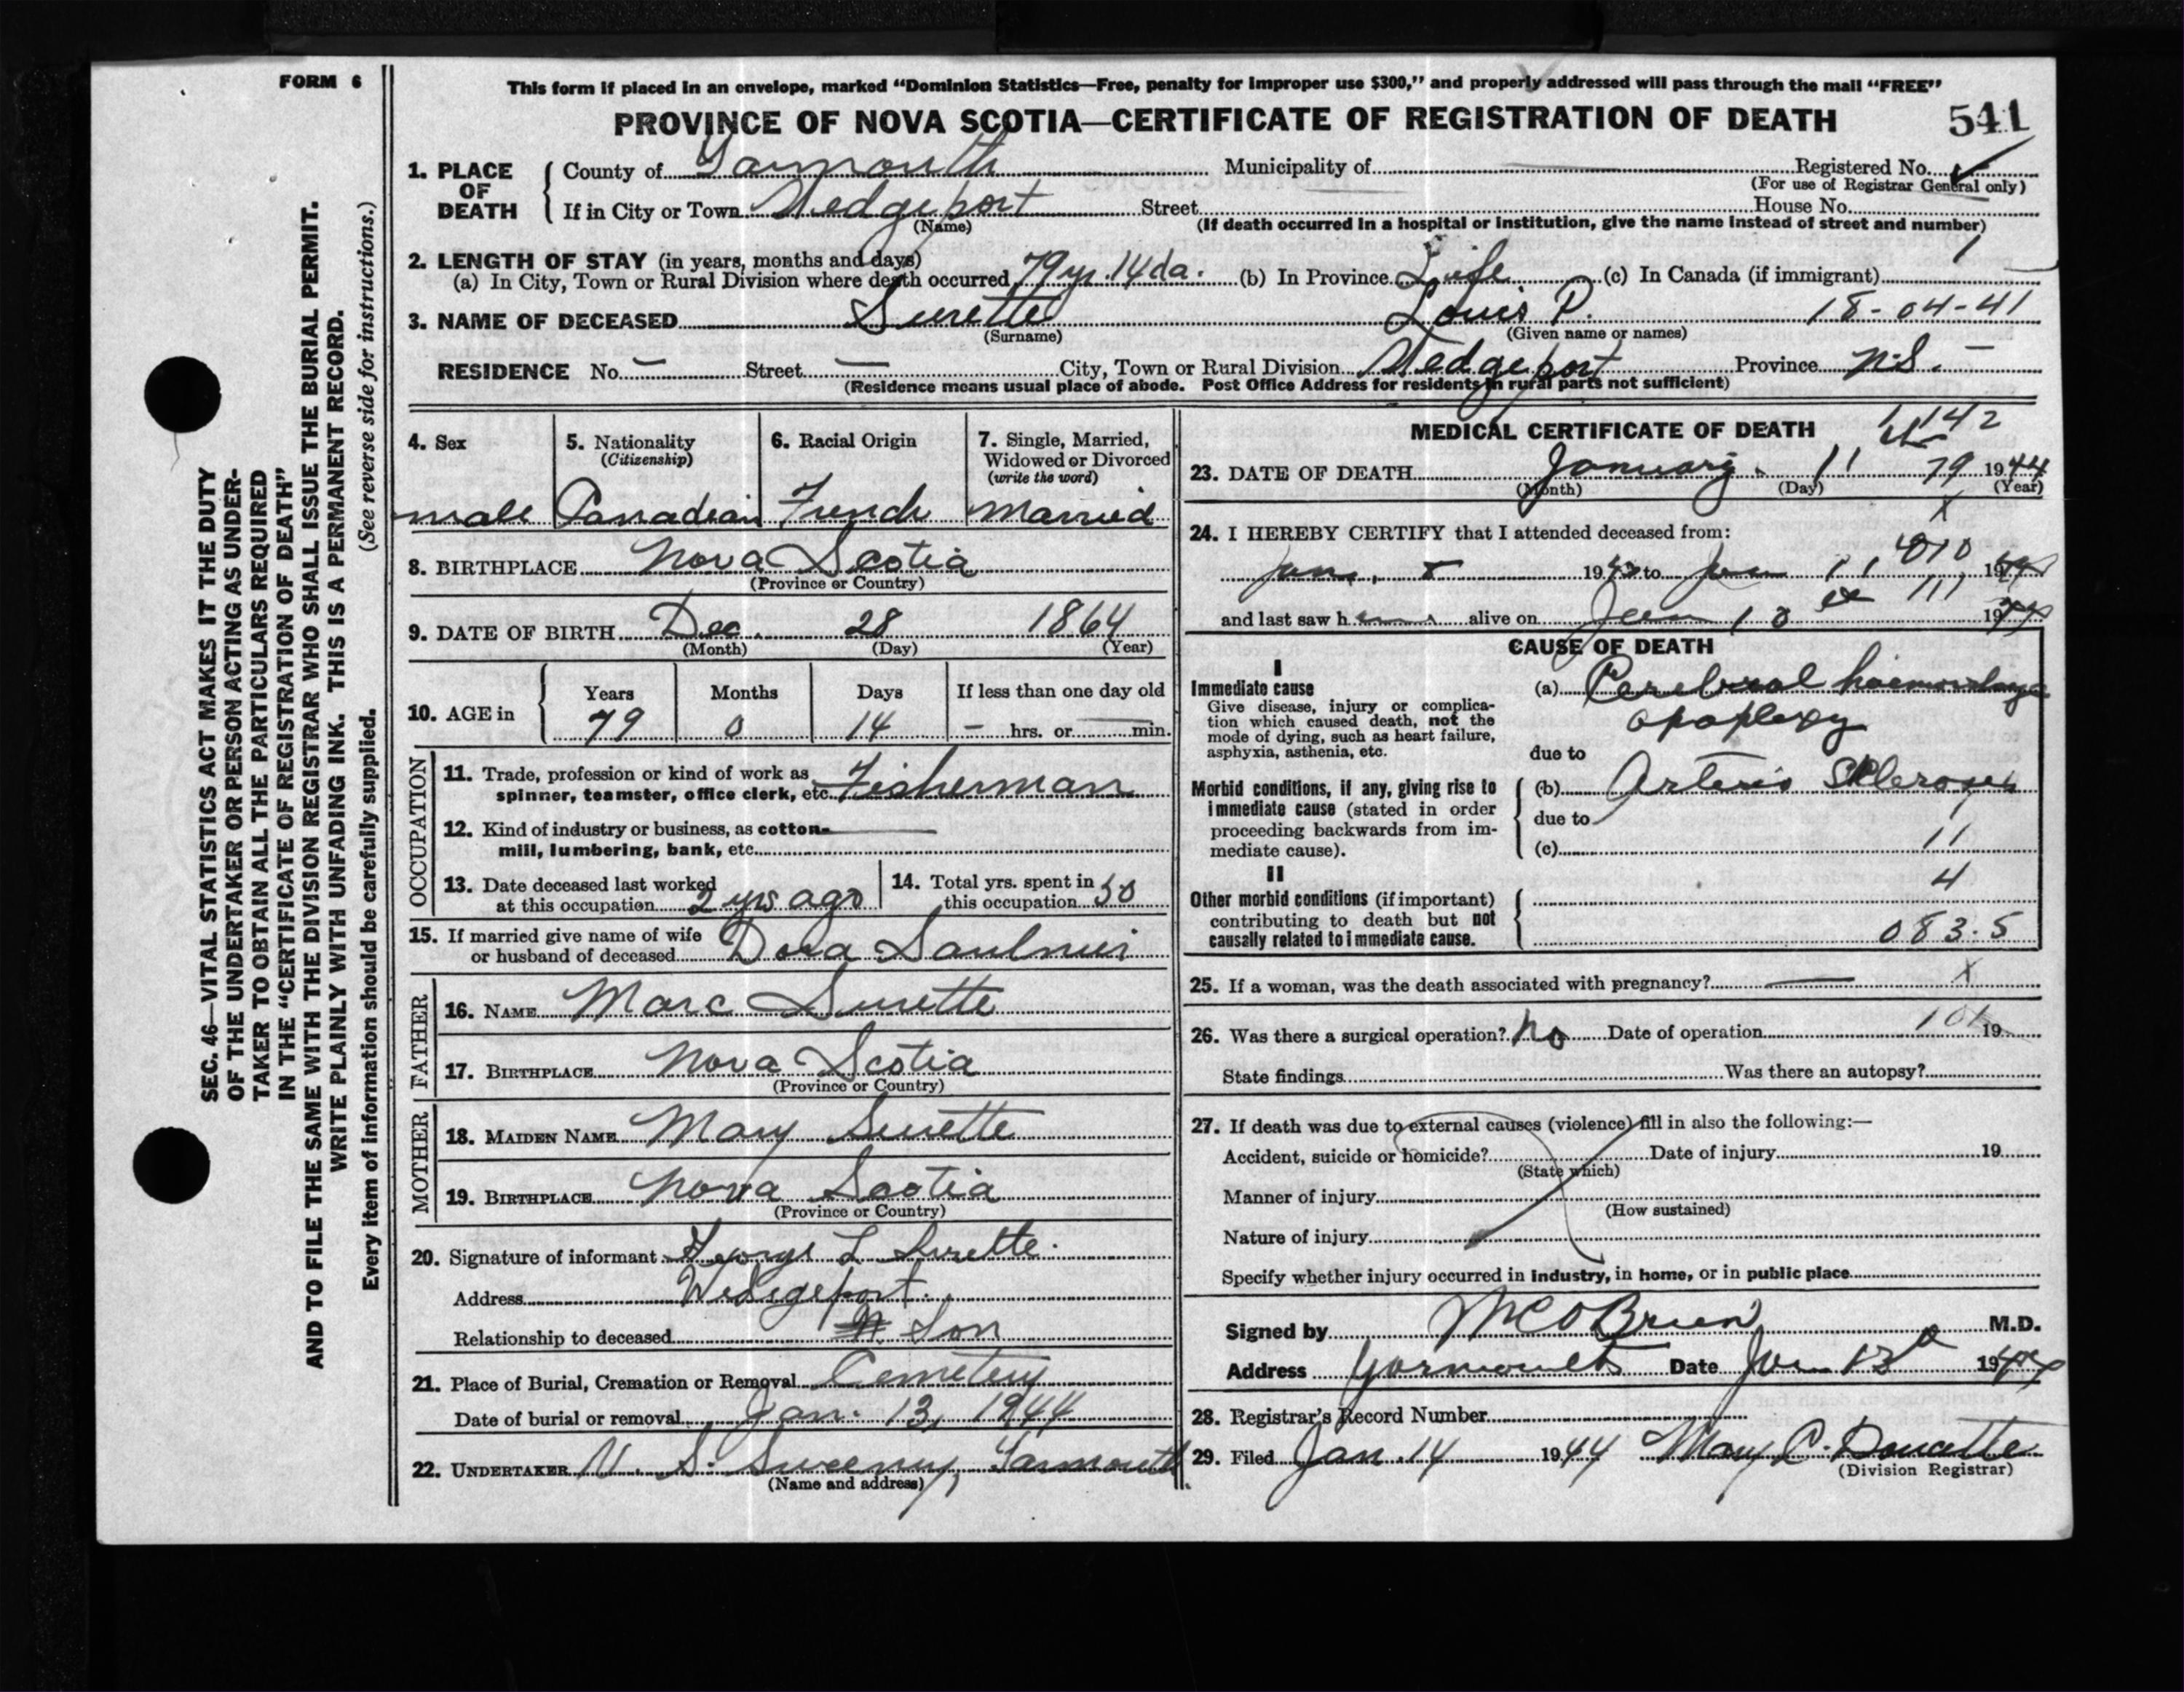 FORM 6
This form if placed in an envelope, marked “Dominion Statistics—Free, penalty for improper use $300,” and properly addressed will pass through the mail “FREE”
PROVINCE OF NOVA SCOTIA—CERTIFICATE OF REGISTRATION OF DEATH
541
SEC. 46—VITAL STATISTICS ACT MAKES IT THE DUTY
OF THE UNDERTAKER OR PERSON ACTING AS UNDER-
TAKER TO OBTAIN ALL THE PARTICULARS REQUIRED
IN THE “CERTIFICATE OF REGISTRATION OF DEATH”
AND TO FILE THE SAME WITH THE DIVISION REGISTRAR WHO SHALL ISSUE THE BURIAL PERMIT.
WRITE PLAINLY WITH UNFADING INK. THIS IS A PERMANENT RECORD.
Every item of information should be carefully supplied. (See reverse side for instructions.)
1. PLACE OF DEATH
County of Yarmouth Municipality of Registered No.
(For use of Registrar General only)
If in City or Town Wedgeport Street House No.
(Name) (If death occurred in a hospital or institution, give the name instead of street and number)
2. LENGTH OF STAY (in years, months and days) 1
(a) In City, Town or Rural Division where death occurred 79 yr. 14 da. (b) In Province Life (c) In Canada (if immigrant)
3. NAME OF DECEASED Surette Louis P. 18-04-41
(Surname) (Given name or names)
RESIDENCE No. — Street — City, Town or Rural Division Wedgeport Province N.S. —
(Residence means usual place of abode. Post Office Address for residents in rural parts not sufficient)
4. Sex
male
5. Nationality
(Citizenship)
Canadian
6. Racial Origin
French
7. Single, Married,
Widowed or Divorced
(write the word)
Married
8. BIRTHPLACE Nova Scotia
(Province or Country)
9. DATE OF BIRTH Dec. 28 1864
(Month) (Day) (Year)
10. AGE in
Years Months Days If less than one day old
79 0 14 — hrs. or min.
OCCUPATION
11. Trade, profession or kind of work as
spinner, teamster, office clerk, etc. Fisherman
12. Kind of industry or business, as cotton-
mill, lumbering, bank, etc.
13. Date deceased last worked
at this occupation 2 yrs ago
14. Total yrs. spent in
this occupation 50
15. If married give name of wife
or husband of deceased Dora Saulnier
FATHER
16. NAME Marc Surette
17. BIRTHPLACE Nova Scotia
(Province or Country)
MOTHER
18. MAIDEN NAME Mary Surette
19. BIRTHPLACE Nova Scotia
(Province or Country)
20. Signature of informant George L Surette.
Address Wedgeport.
Relationship to deceased Son
21. Place of Burial, Cremation or Removal Cemetery
Date of burial or removal Jan. 13, 1944
22. UNDERTAKER S. Sweeney, Yarmouth
(Name and address)
MEDICAL CERTIFICATE OF DEATH
1 142
23. DATE OF DEATH January 11 79 1944
(Month) (Day) (Year)
x
24. I HEREBY CERTIFY that I attended deceased from:
Jan. 8 to Jan 11 010 1944
and last saw h alive on Jan 10 111 1944
CAUSE OF DEATH
I
Immediate cause
Give disease, injury or complica-
tion which caused death, not the
mode of dying, such as heart failure,
asphyxia, asthenia, etc.
(a) Cerebral haemorrhage
apoplexy
due to
Morbid conditions, if any, giving rise to
immediate cause (stated in order
proceeding backwards from im-
mediate cause).
(b) Arterio Sclerosis
due to
(c) 11
II
Other morbid conditions (if important)
contributing to death but not
causally related to immediate cause.
4
083.5
25. If a woman, was the death associated with pregnancy? — x
26. Was there a surgical operation? No Date of operation 101 19
State findings Was there an autopsy?
27. If death was due to external causes (violence) fill in also the following:—
Accident, suicide or homicide? Date of injury 19
(State which)
Manner of injury
(How sustained)
Nature of injury
Specify whether injury occurred in industry, in home, or in public place
Signed by M C O Brien M.D.
Address Yarmouth Date Jan 13 1944
28. Registrar’s Record Number
29. Filed Jan. 14 1944 Mary C. Doucette
(Division Registrar)